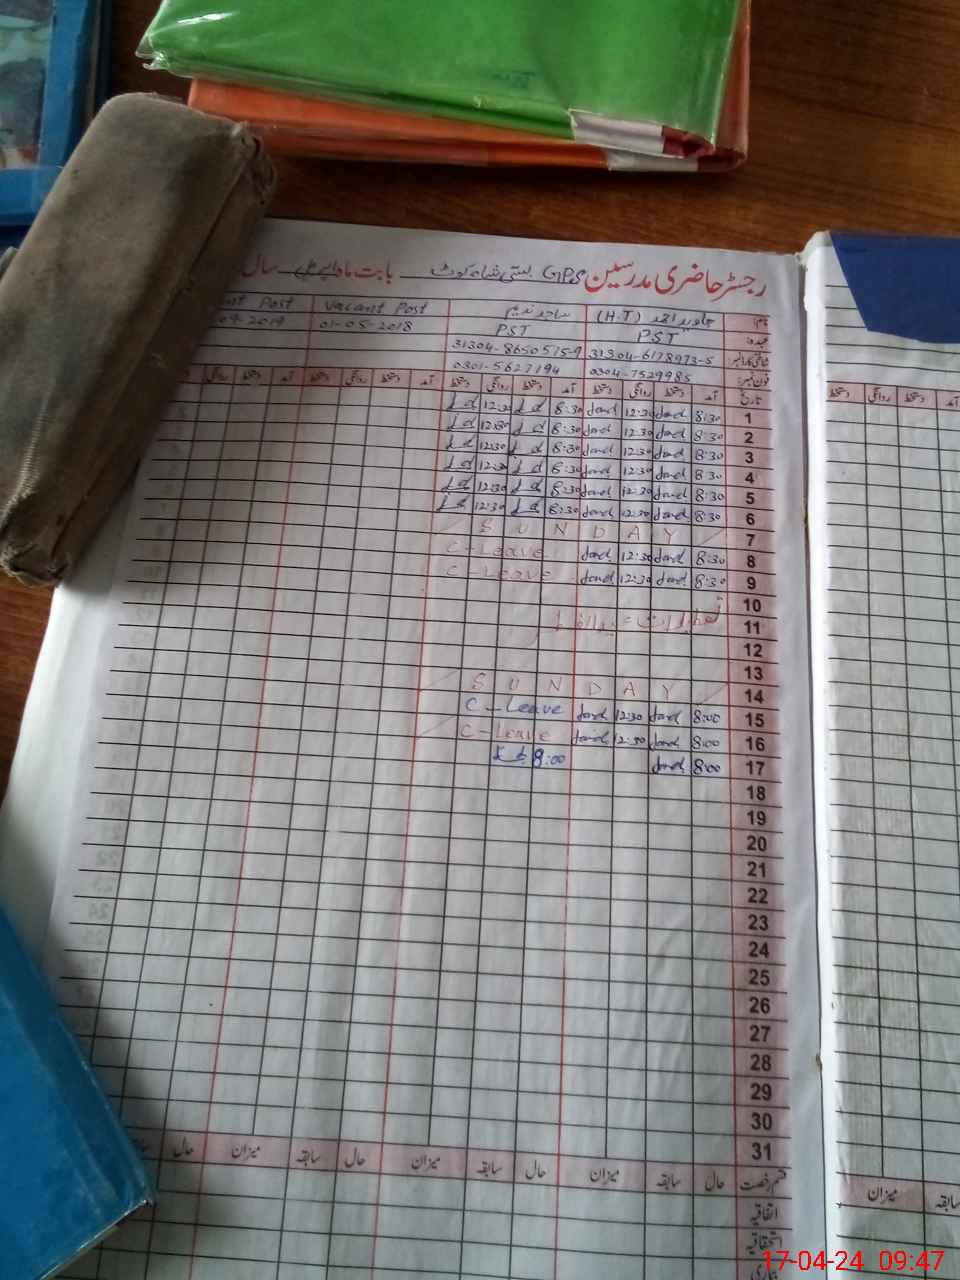 رجسٹر حاضری مدرسین GPS بستی شاہ کوٹ بابت ماہ اپریل سال
نام: جاوید احمد (H.T) ساجد ندیم Vacant Post Post
عہدہ: PST PST 01-05-2018
شناختی کارڈ نمبر: 31304-6178973-5 31304-8650575-9
فون نمبر: 0304-7529985 0301-5627194
تاریخ آمد دستخط روانگی دستخط آمد دستخط روانگی دستخط آمد دستخط روانگی دستخط آمد دستخط روانگی
1 8:30 Javed 12:30 Javed 8:30 12:30
2 8:30 Javed 12:30 Javed 8:30 12:30
3 8:30 Javed 12:30 Javed 8:30 12:30
4 8:30 Javed 12:30 Javed 8:30 12:30
5 8:30 Javed 12:30 Javed 8:30 12:30
6 8:30 Javed 12:30 Javed 8:30 12:30
7 SUNDAY
8 8:30 Javed 12:30 Javed C-Leave
9 8:30 Javed 12:30 Javed C-Leave
10
11 تعطیلات عیدالفطر
12
13
14 SUNDAY
15 8:00 Javed 12:30 Javed C-Leave
16 8:00 Javed 12:30 Javed C-Leave
17 8:00 Javed 8:00
18
19
20
21
22
23
24
25
26
27
28
29
30
31
قسم رخصت حال سابقہ میزان حال سابقہ میزان حال سابقہ میزان حال
اتفاقیہ
استحقاقیہ
دستخط روانگی دستخط آمد
میزان سابقہ
17-04-24 09:47